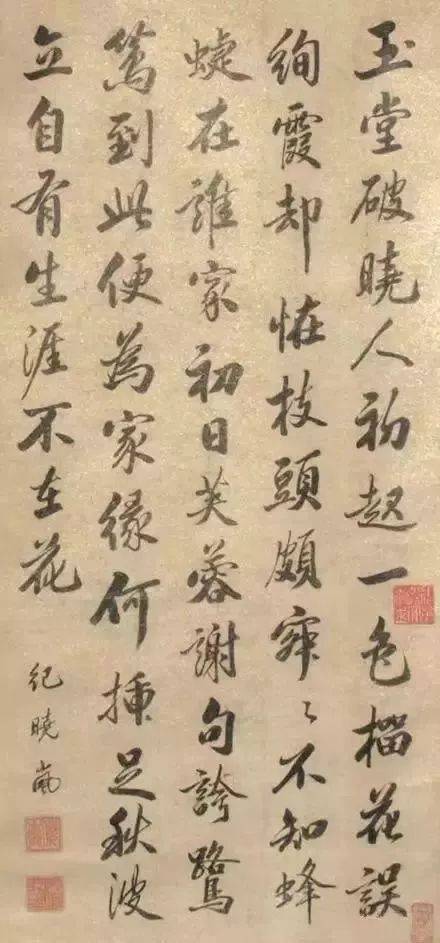 玉堂破曉人初起一色榴花誤
絢霞却怪枝頭頗寂〻不知蜂
蜨在誰家初日芙蓉謝句誇鷺
鷥到此便為家緣何插足秋波
立自有生涯不在花
紀曉嵐